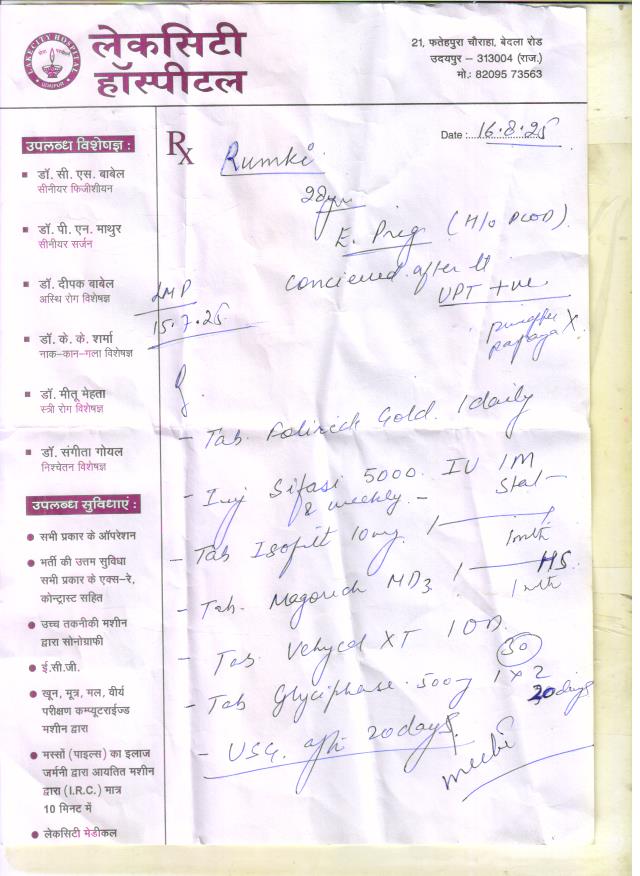 LAKECITY HOSPITAL
UDAIPUR
लेकसिटी
हॉस्पीटल
21, फतेहपुरा चौराहा, बेदला रोड
उदयपुर – 313004 (राज.)
मो.: 82095 73563
उपलब्ध विशेषज्ञ :
डॉ. सी. एस. बाबेल
सीनीयर फिजीशीयन
डॉ. पी. एन. माथुर
सीनीयर सर्जन
डॉ. दीपक बाबेल
अस्थि रोग विशेषज्ञ
डॉ. के. के. शर्मा
नाक-कान-गला विशेषज्ञ
डॉ. मीतू मेहता
स्त्री रोग विशेषज्ञ
डॉ. संगीता गोयल
निश्चेतन विशेषज्ञ
उपलब्ध सुविधाएं :
सभी प्रकार के ऑपरेशन
भर्ती की उत्तम सुविधा
सभी प्रकार के एक्स-रे,
कोन्ट्रास्ट सहित
उच्च तकनीकी मशीन
द्वारा सोनोग्राफी
ई.सी.जी.
खून, मूत्र, मल, वीर्य
परीक्षण कम्प्यूटराईज्ड
मशीन द्वारा
मस्सों (पाइल्स) का इलाज
जर्मनी द्वारा आयतित मशीन
द्वारा (I.R.C.) मात्र
10 मिनट में
लेकसिटी मेडीकल
Rx
Date : 16.8.25
Rumki
E. Preg (H/o PCOD)
Concieved after tt
UPT +ve
LMP
15.7.25
papaya X
- Tab. Gold. 1 daily
- Inj Sifasi 5000 IU IM
& weekly - Stat -
- Tab 10mg 1
1 mth
- Tab. MD3 1 HS
1 mth
- Tab XT 1 OD
30
- Tab Glyciphase 500mg 1 x 2
20 days
- USG. after 20 days